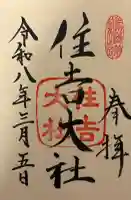 奉拝
住吉大社
住吉
大社
令和八年三月五日